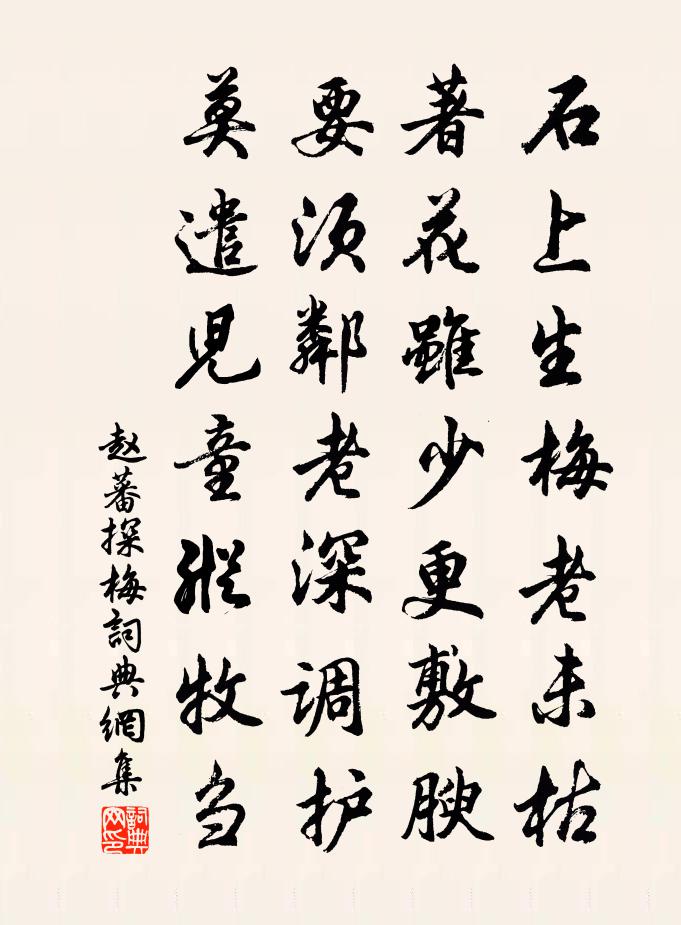 石上生梅老未枯
著花雖少更敷腴
要须鄰老深调护
莫遣児童縱牧刍
赵蕃探梅詞典網集
詞典网印